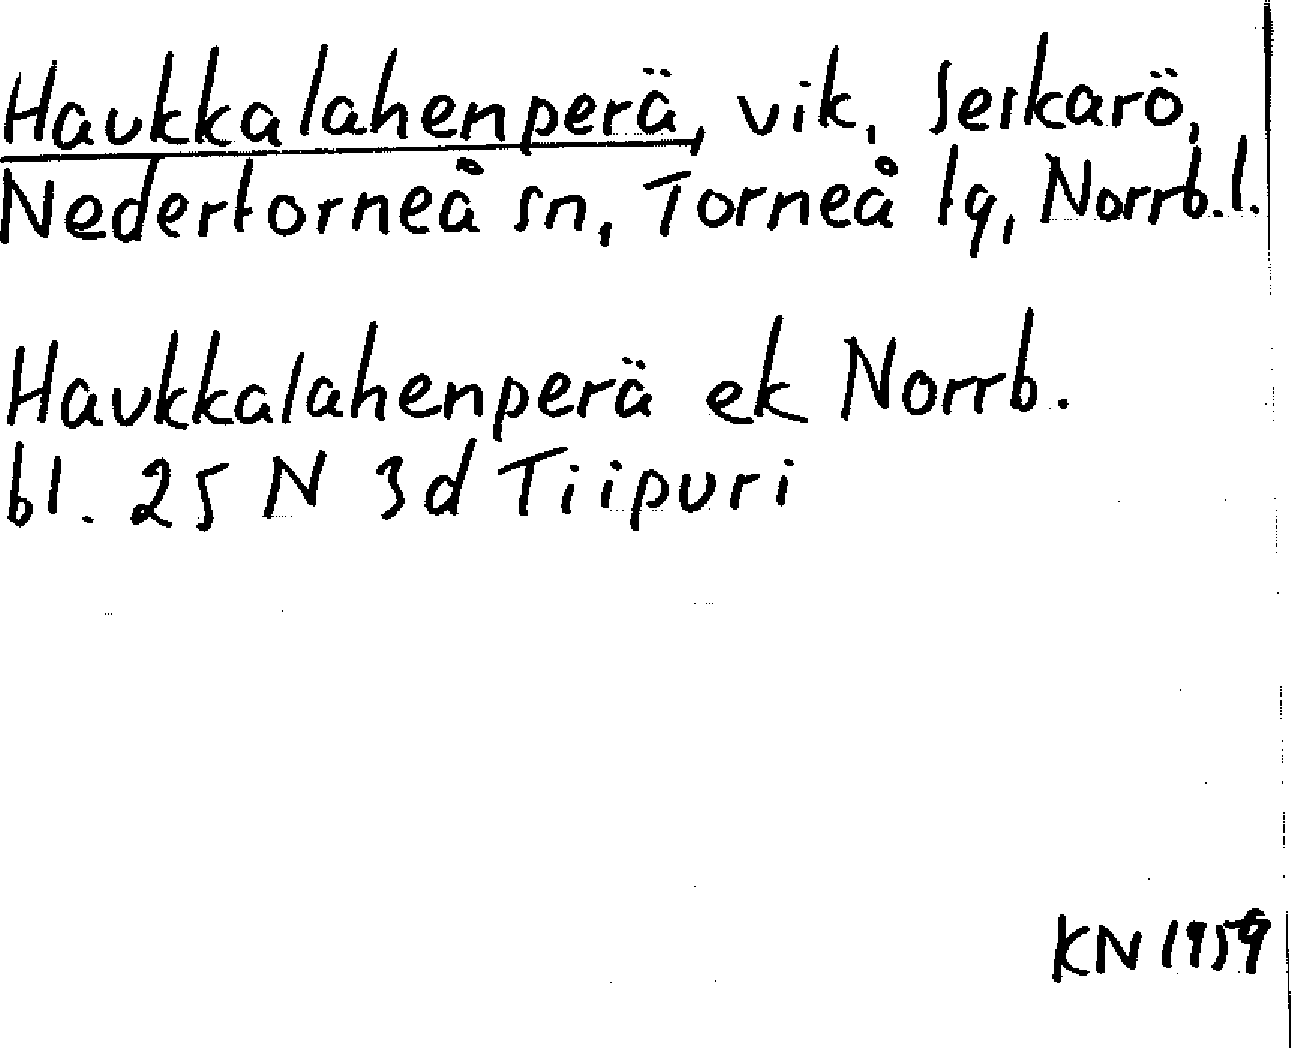 Haukkalahenperä, vik, Seskarö,
Nedertorneå sn, Torneå tg, Norrb.l.
Haukkalahenperä ek Norrb.
bl. 25 N 3d Tiipuri
KN 1959